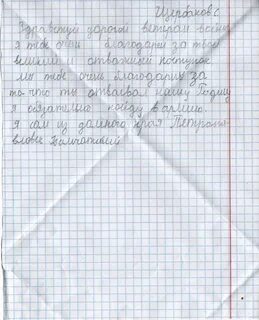 Щербаков С.
Здравствуй дорогой ветеран войны
я тебе очень благодарен за твой
великий и отважный поступок.
мы тебе очень благодарим за
то что ты отвоевал нашу Родину
я обязательно пойду в армию.
я сам из далнего края Петропа-
вловск Камчатский